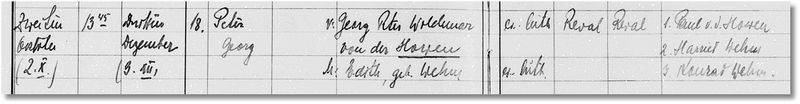 Zwei
Oktober
(2. X.)
13 45
Dezember
(3. XII,
18. Peter
Georg
v: Georg Peter Woldemar
von der Howen
M: Edith, geb. Wehm
ev. luth.
ev. luth.
Reval
Reval
1. Paul v. d. Howen
2. Harried Wehm
3. Konrad Wehm.